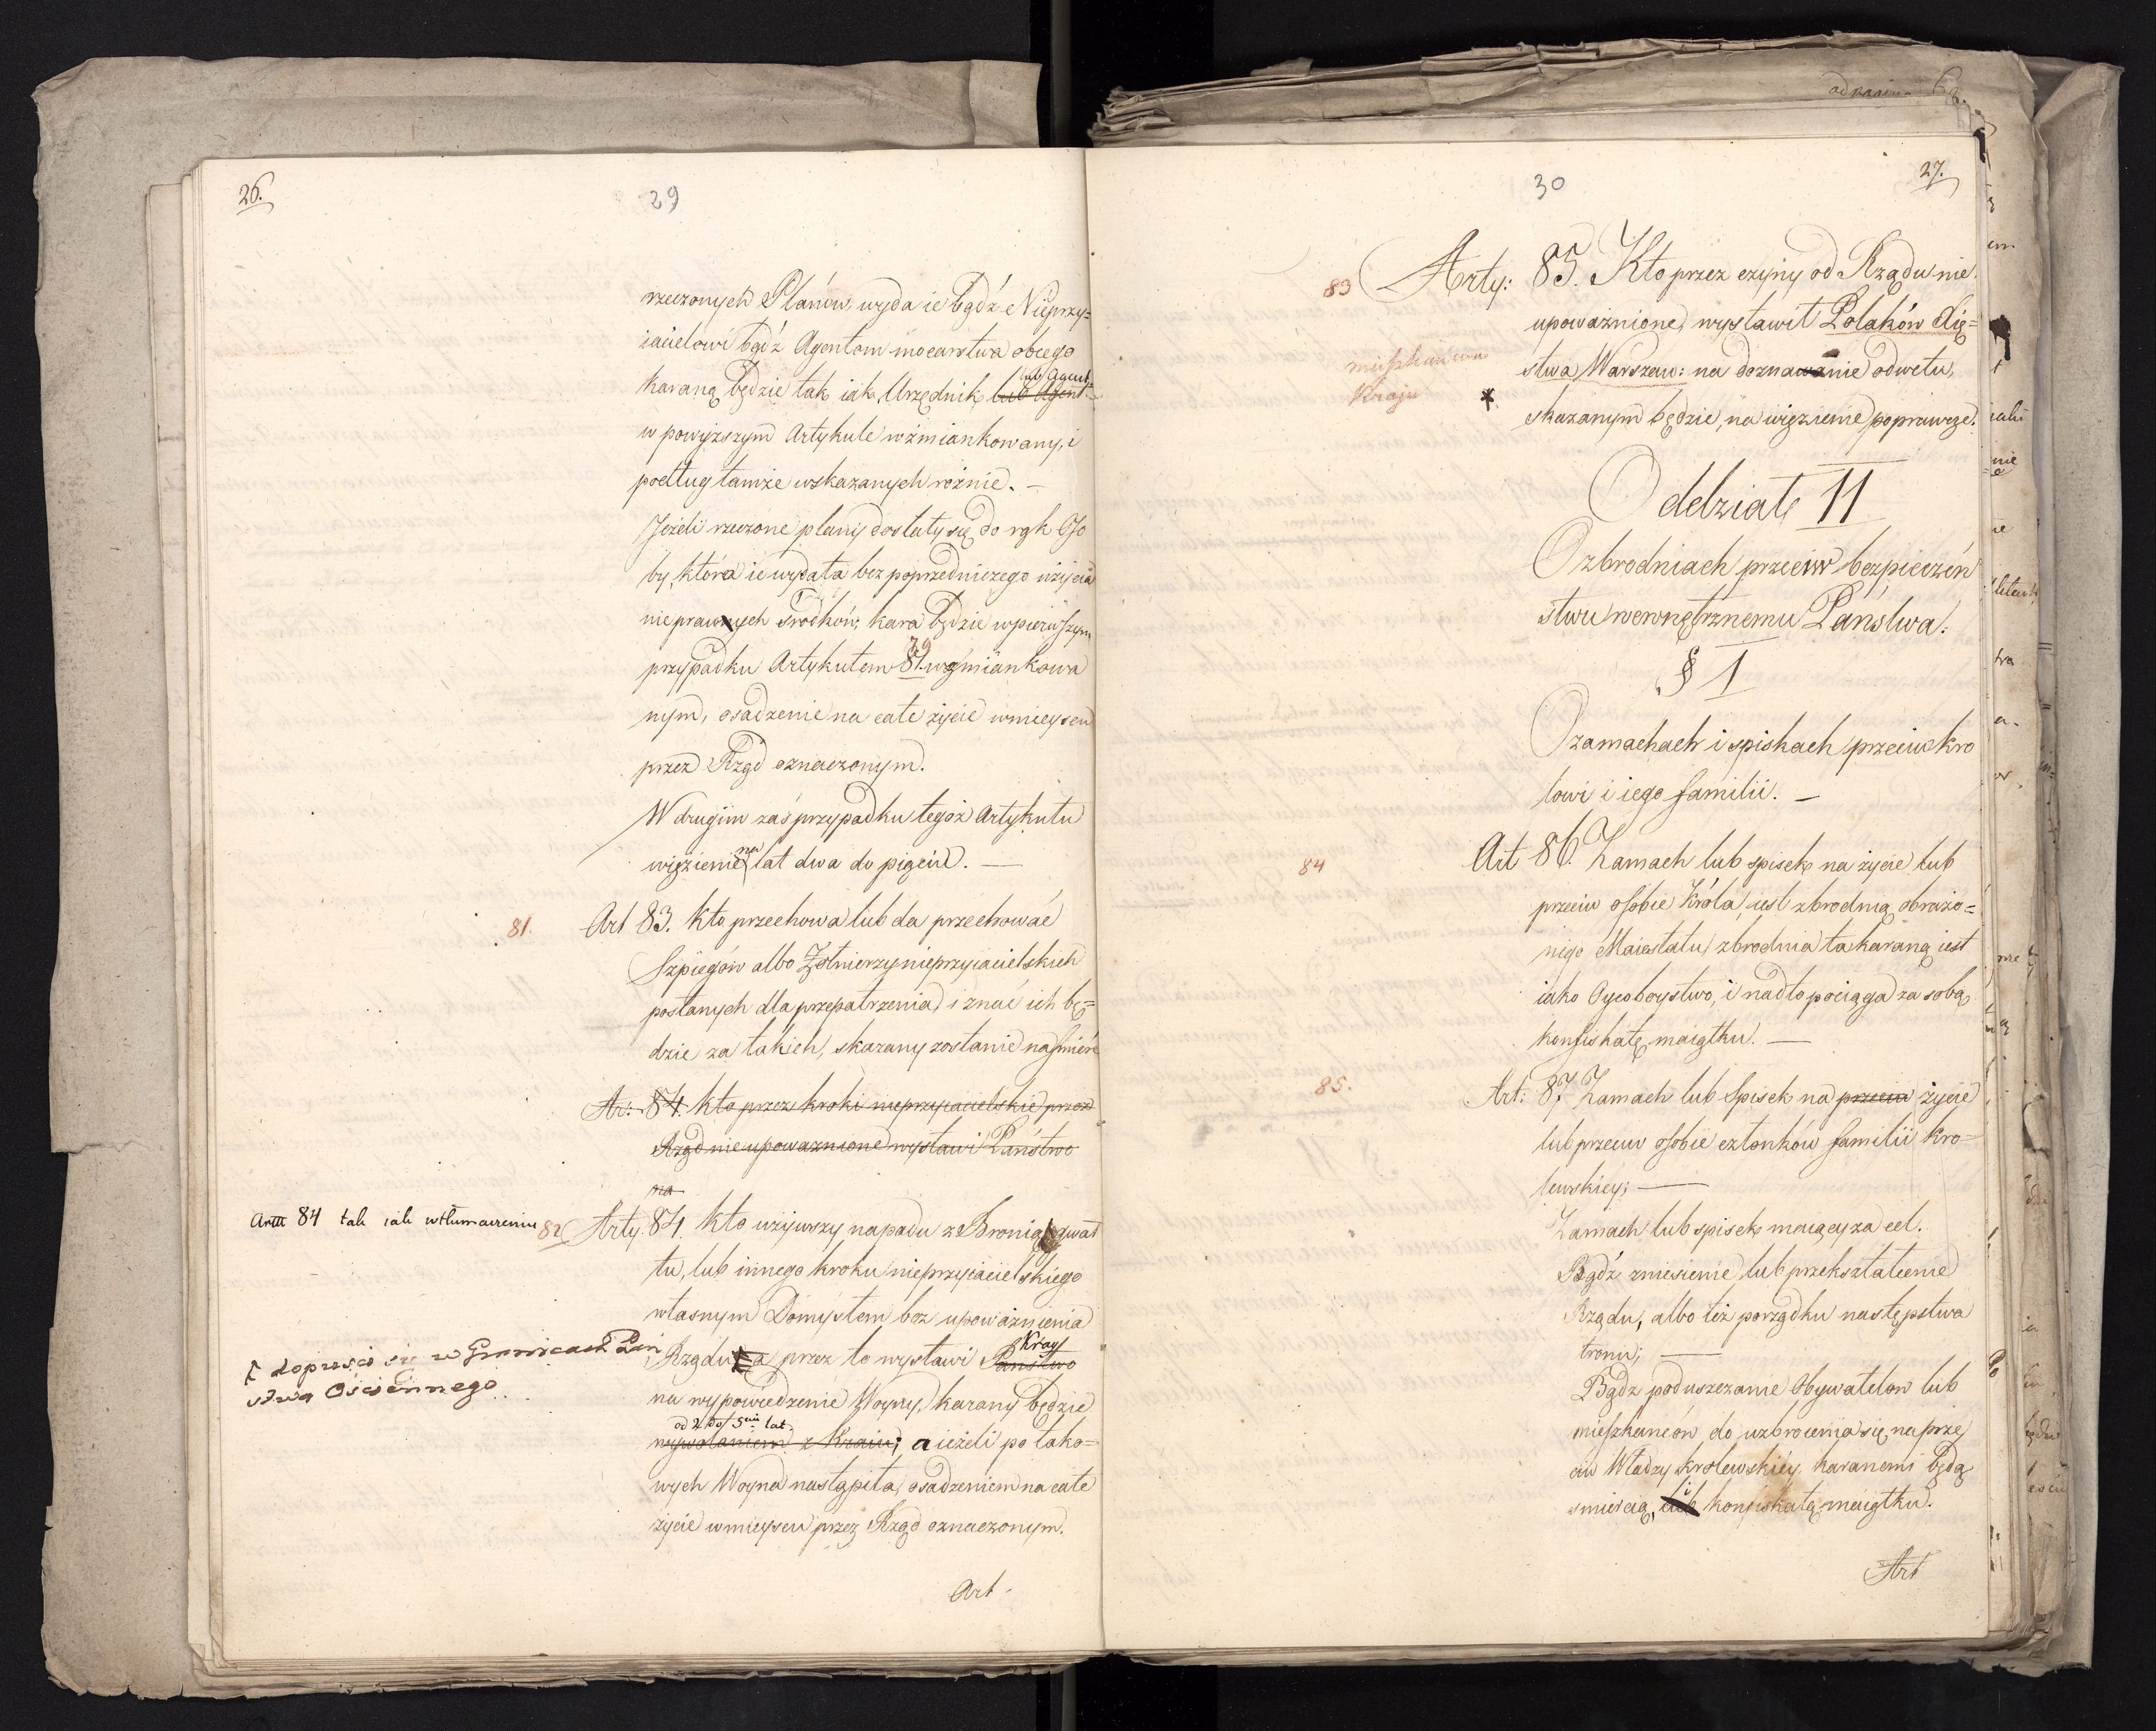 26.
29
rzeczonych Planów, wyda ie bądź Nieprzy=
iacielowi bądź Agentom mocarstwa obcego
lub Agent
karaną będzie tak iak Urzędnik lub Agent
w powyższym Artykule wźmiankowany, i
podług tamże wskazanych różnic. —
Jeżeli rzeczone plany dostały się do rąk Oso
by, która ie wydała bez poprzedniczego użycia
nieprawnych środków, kara będzie w pierwszym
79
przypadku Artykułem 81. wzmiankowa
nym, osadzenie na całe życie w mieyscu
przez Rząd oznaczonym.
W drugim zaś przypadku tegoż Artykułu
na
więzienie lat dwa do pięciu. —
81. Art 83. kto przechowa lub da przechować
Szpiegów albo Żołnierzy nieprzyiacielskich
posłanych dla przepatrzenia, i znać ich bę=
dzie za takich, skazany zostanie na śmierć
Ar: 84. kto przez kroki nieprzyiacielskie przez
Rząd nie upoważnione wystawi Państwo
na
Art 84 tak iak w tłumaczeniu
82 Arty. 84. kto użyiwszy napadu z Bronią gwał
tu, lub innego kroku nieprzyiacielskiego
własnym Domysłem bez upoważnienia
Kray
Rządu a przez to wystawi Państwo
dopuści się w Granicach Pań
stwa Ościennego
na wypowiedzenie Woyny, karany będzie
od 2 do 5ciu lat
wywołaniem z Kraiu; a ieżeli po tako=
wych Woyna nastąpiła, osadzeniem na całe
życie w mieyscu przez Rząd oznaczonym.
Art.
27.
30
83 Arty: 85. Kto przez czyny od Rządu nie
upoważnione, wystawił Polaków Xię=
mieszkańców
Kraju
stwa Warszaw: na doznawanie odwetu,
skazanym będzie, na więzienie poprawcze.
Oddział II
O zbrodniach przeciw bezpieczeń
stwu wewnętrznemu Państwa.
§ 1
O zamachach i spiskach przeciw kro
lowi i iego familii. —
84 Art 86. Zamach lub spisek na życie lub
przeciw osobie Króla, iest zbrodnią obrażo=
nego Maiestatu, zbrodnia ta karaną iest
iako Oycoboystwo, i nadto pociąga za sobą
konfiskatę maiątku. —
85. Art: 87. Zamach lub Spisek na przeciw życie
lub przeciw osobie członków familii kro=
lewskiey; —
Zamach lub spisek maiący za cel.
Bądź zniesienie lub przekształcenie
Rządu, albo też porządku następstwa
tronu; —
Bądz poduszczanie Obywatelow lub
mieszkańców do uzbroienia się na prze
ciw Władzy krolewskiey, karanemi będą
i
smiercią, lub konfiskatą maiątku.
Art